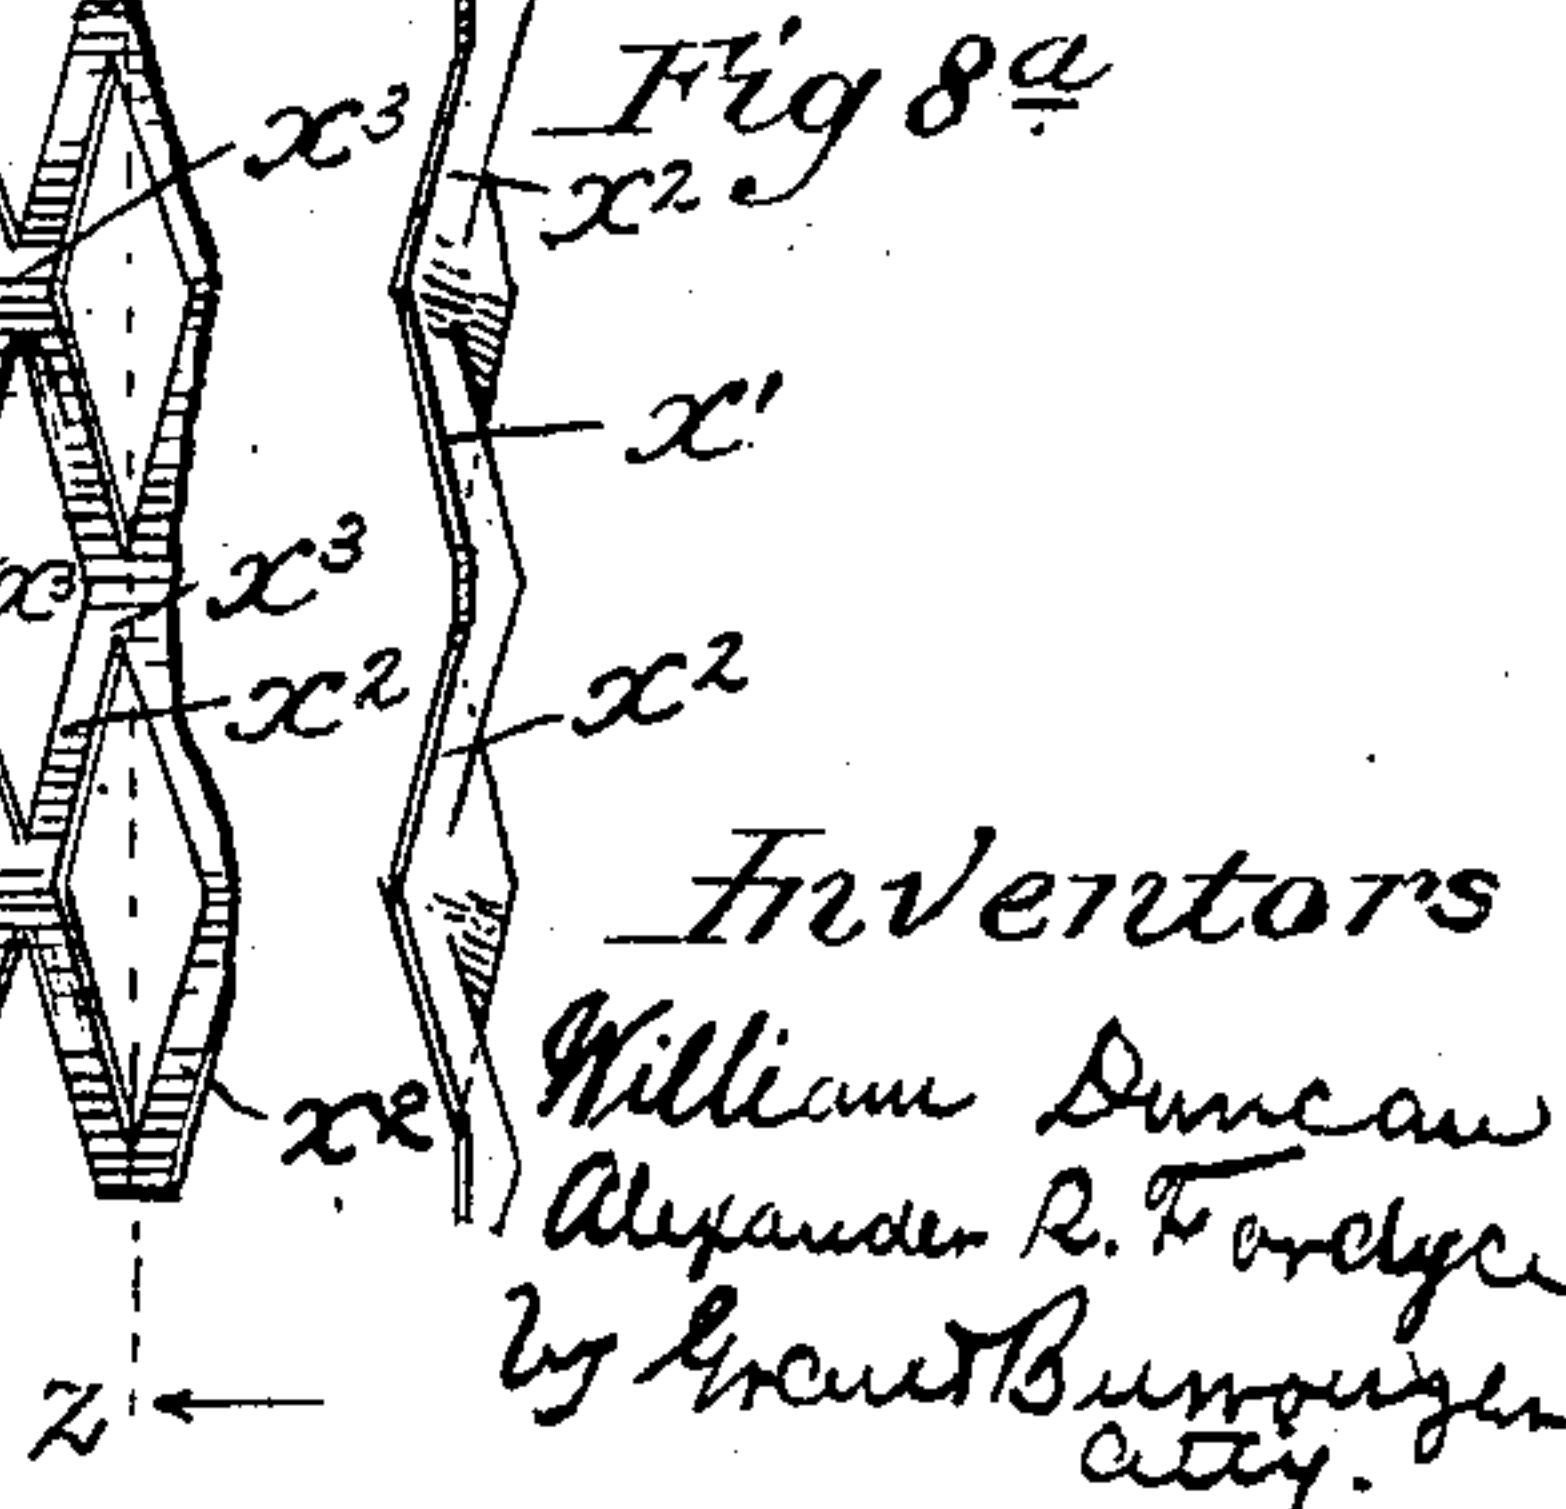 Fig 8a
x3
x2
x'
x3
x2
x2
Inventors
William Duncan
x2
Alexander R. Fordyce
by Grant Burroughs
Z
atty.